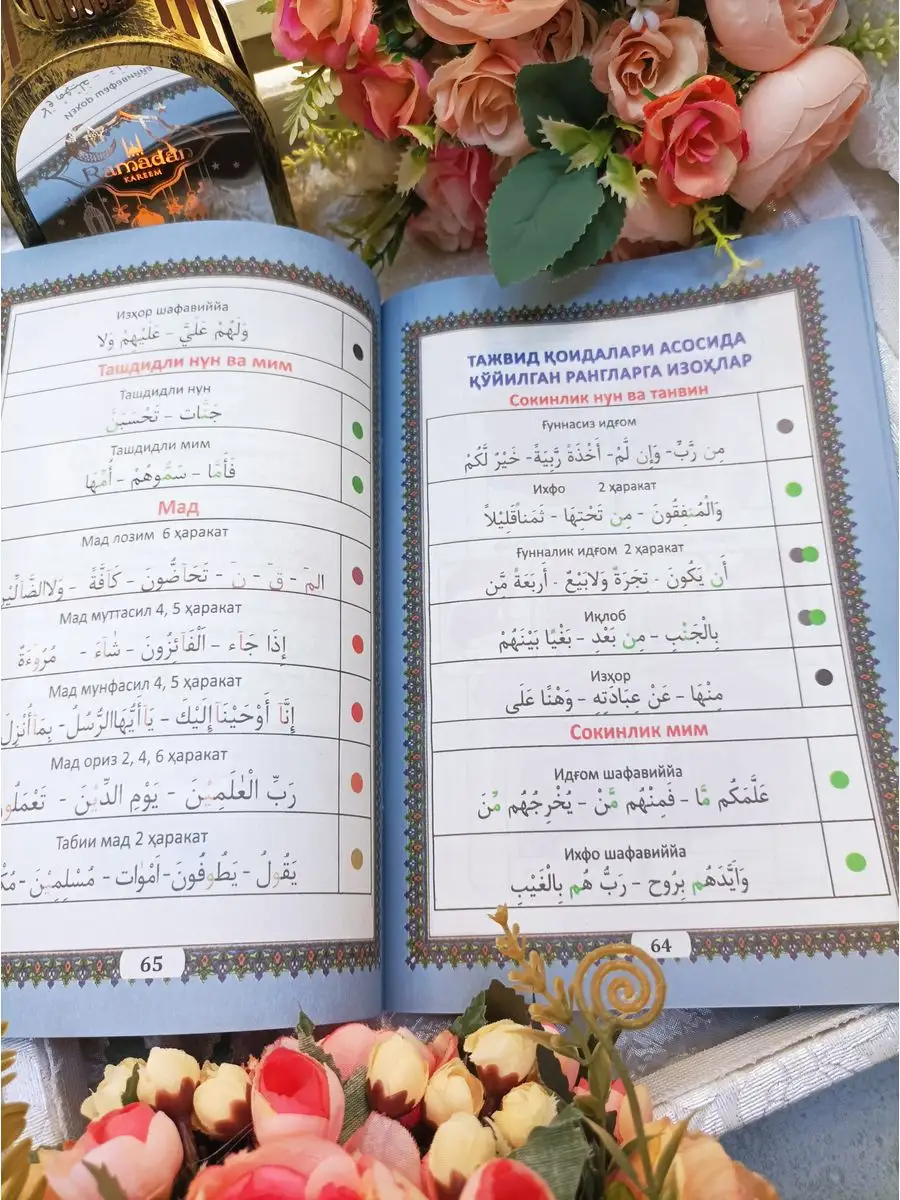 Ramadan
KAREEM
ТАЖВИД ҚОИДАЛАРИ АСОСИДА
ҚЎЙИЛГАН РАНГЛАРГА ИЗОҲЛАР
Сокинлик нун ва танвин
Ғуннасиз идғом
مِن رَّبِّ- وَإِن لَّمْ- أَخْذَةً رَّبِيَةً- خَيْرٌ لَّكُمْ
Ихфо 2 ҳаракат
وَالْمُنفِقُونَ - مِن تَحْتِهَا - ثَمَناًقَلِيْلاً
Ғунналик идғом 2 ҳаракат
أَن يَكُونَ - تِجَرَةً وَلَابَيْعٌ - أَرَبَعَةً مَّن
Иқлоб
بِالْجَنْبِ - مِن بَعْدِ - بَغْيًا بَيْنَهُمْ
Изҳор
مِنْهَا - عَنْ عِبَادَتِهِ - وَهْنًا عَلَى
Сокинлик мим
Идғом шафавиййа
عَلَّمَكُم مَّا - فَمِنْهُم مَّنْ - يُخْرِجُهُم مِّنَ
Ихфо шафавиййа
وَأَيَّدَهُم بِرُوحٍ - رَبَّهُم بِالْغَيْبِ
64
Изҳор шафавиййа
وَلَهُمْ عَلَيَّ - عَلَيْهِمْ وَلا
Ташдидли нун ва мим
Ташдидли нун
جَنَّات - تَحْسَبَنَّ
Ташдидли мим
فَأَمَّا - سَمُّوهُمْ - أُمِّهَا
Мад
Мад лозим 6 ҳаракат
الم - ق - ن - تَحَاضُّونَ - كَافَّةً - وَلاالضَّالِّيْنَ
Мад муттасил 4, 5 ҳаракат
إِذَا جَآء - الْفَآئِزُونَ - شَآءَ - مُرُوٓءَةٌ
Мад мунфасил 4, 5 ҳаракат
إِنَّآ أَوْحَيْنَآ إِلَيْك - يَآأَيُّهَاالرَّسُلُ - بِمَآأُنْزِلَ
Мад ориз 2, 4, 6 ҳаракат
رَبِّ الْعٰلَمِيْنَ - يَوْمِ الدِّيْنَ - تَعْمَلُو
Табии мад 2 ҳаракат
يَقُولُ - يَطُوفُونَ - اَمْوَات - مُسْلِمِيْنَ
65